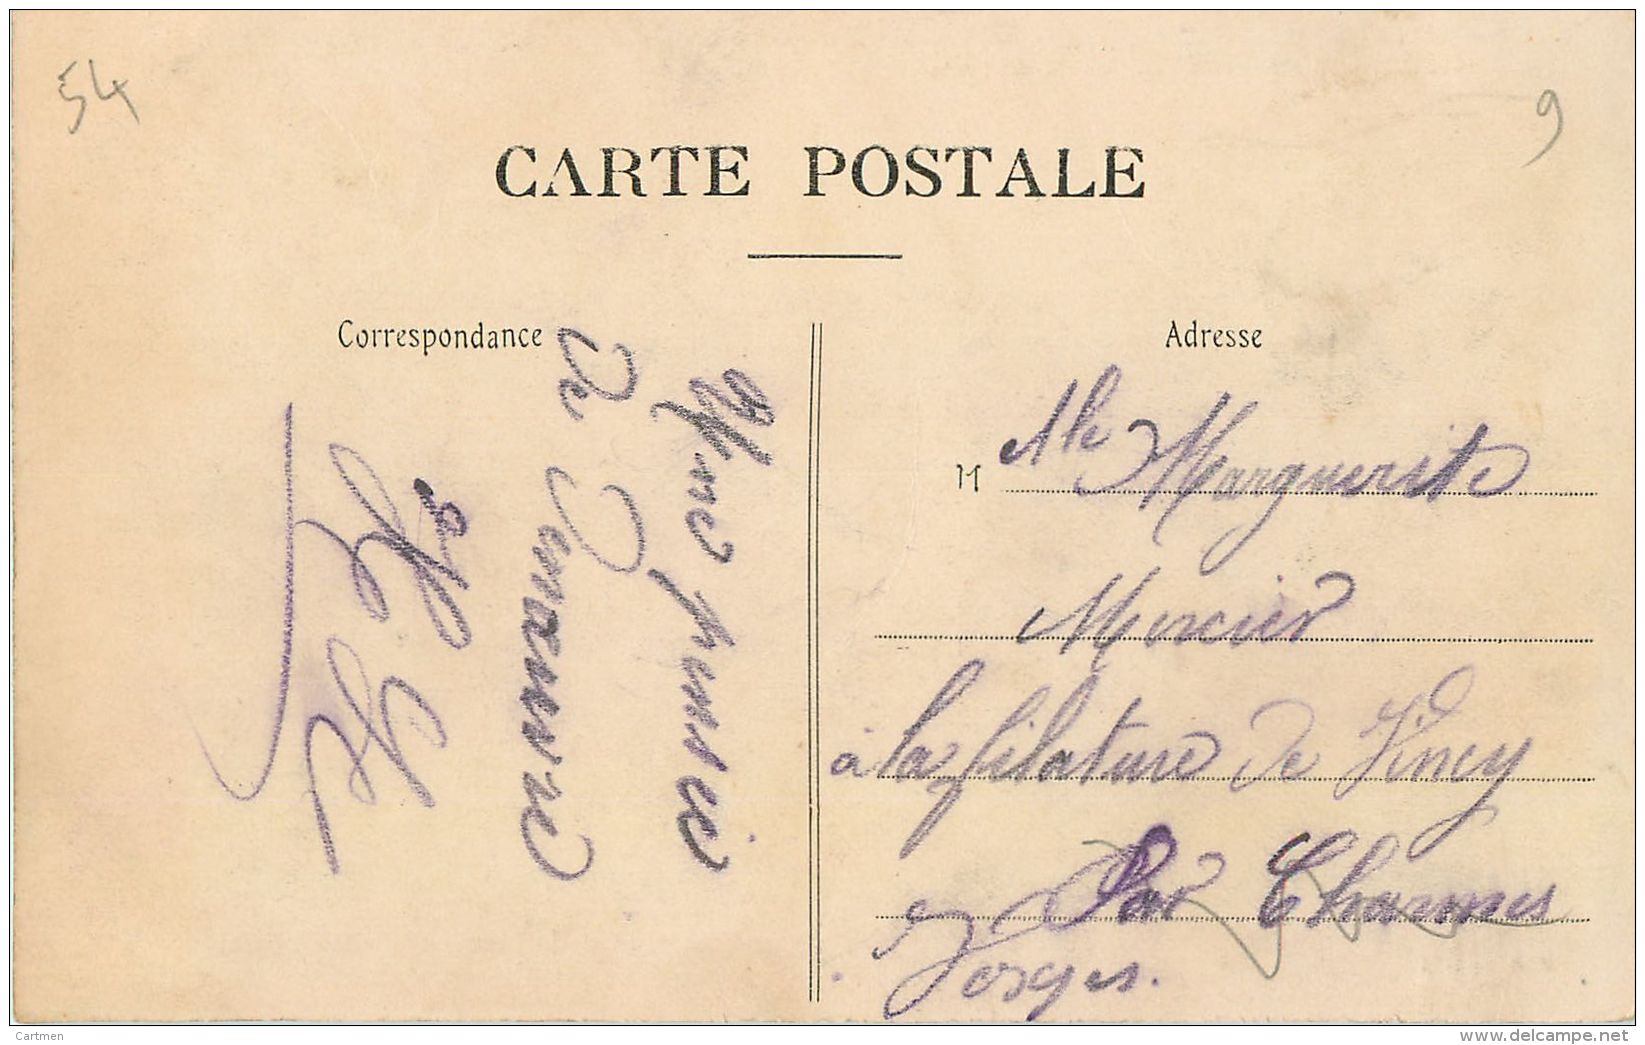 54
9
CARTE POSTALE
Correspondance
Adresse
Une pensée
De
M Mlle Marguerite
Mercier
à la filature de Vincey
Par Charmes
Vosges.
Cartmen
www.delcampe.net